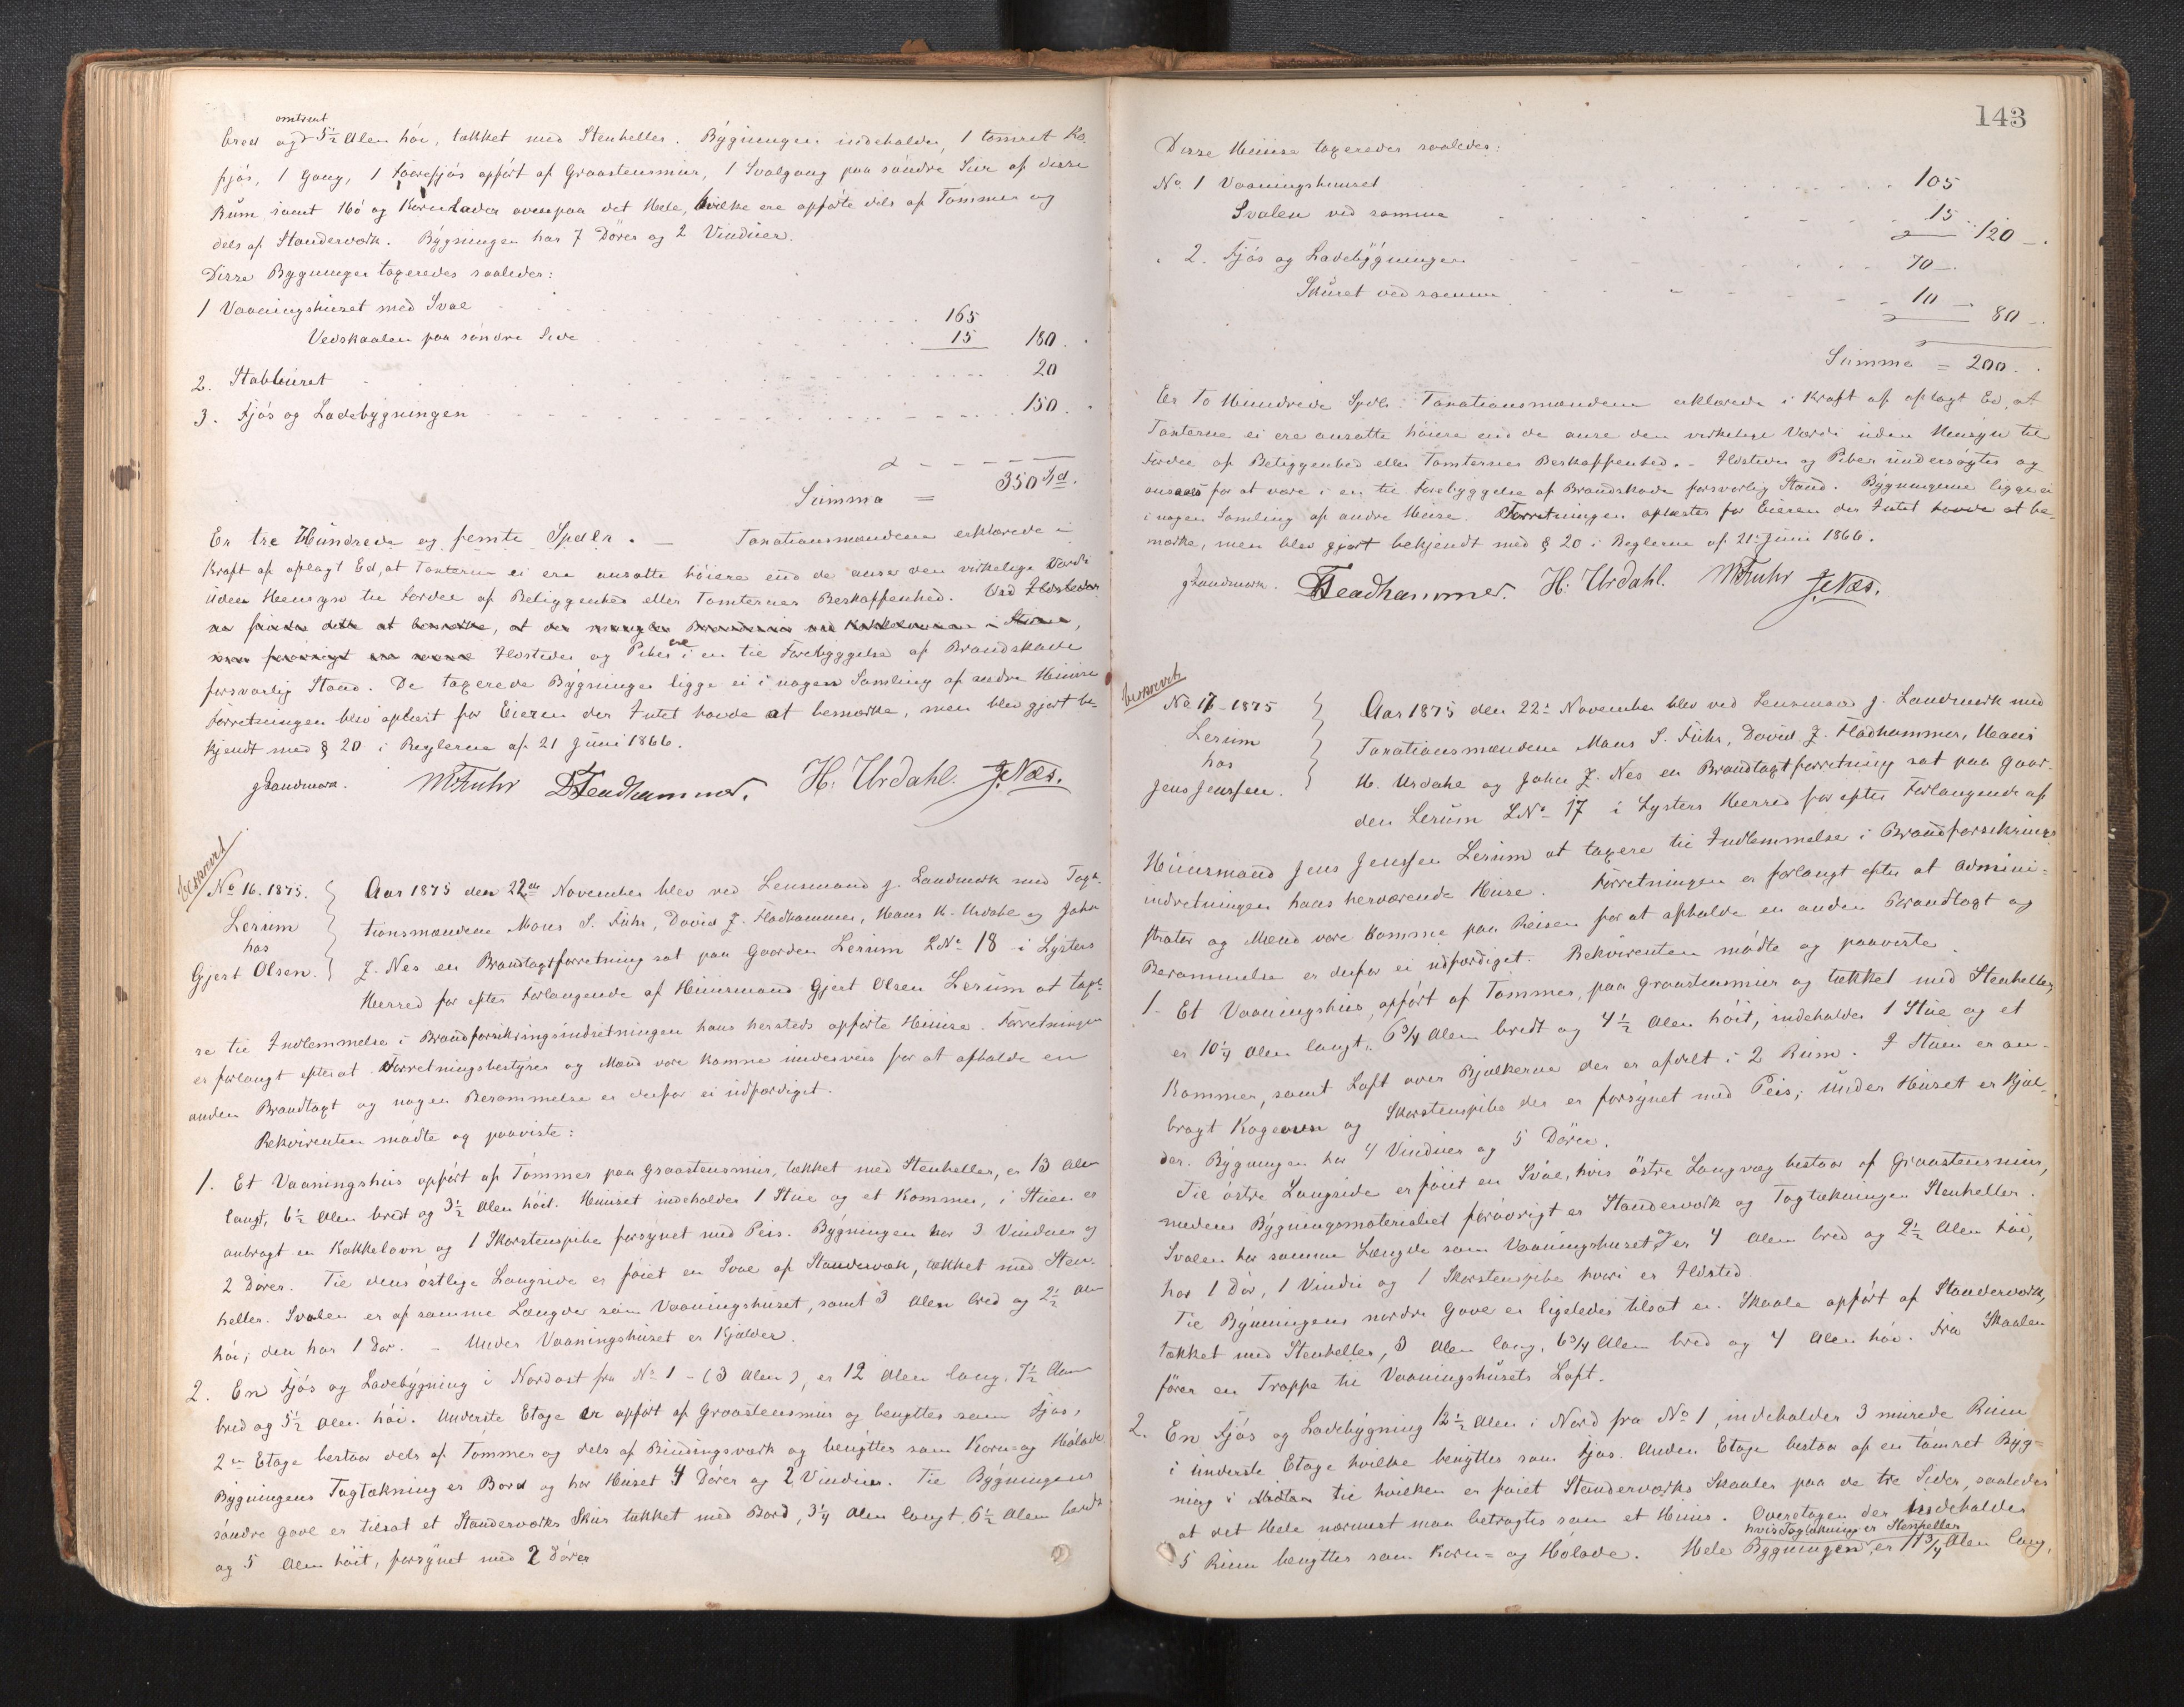 omtrent
bred og 5½ Alen höi, tækket med Stenheller. Bÿgningen indeholder 1 tömret Ko-
fjös, 1 Gang, 1 Faarefjös opfört af Graastensmur, 1 Svalgang paa söndre Side af disse
Rum, samt Hö og Kornlader ovenpaa det Hele, hvilke ere opförte dels af Tömmer og
dels af Standerværk. Bÿgningen har 7 Dörer og 2 Vinduer.
Disse Bygninger taxeredes saaledes:
1 Vaaningshuset med Sval 165
Vedskaalen paa söndre Side 15 180.
2. Stabburet 20
3. Fjös og Ladebygningen 150.
Summa = 350 Spd.
Er tre Hundrede og femti Spdlr. — Taxationsmændene erklærede i
Kraft af aflagt Ed, at Taxterne ei ere ansatte höiere end de anse den virkelige Værdi
uden Hensyn til Fordel af Beliggenhed eller Tomternes Beskaffenhed. Ved Ildsteder
ne fandtes dette at bemærke, at der mangler
Ildsteder og Piber ere i en til Forebyggelse af Brandskade
forsvarlig Stand. De taxerede Bygninger ligge ei i nogen Samling af andre Huse
Forretningen blev oplæst for Eieren der Intet havde at bemærke, men blev gjort be-
kjendt med § 20 i Reglerne af 21 Juni 1866.
J Landmark. MSFuhr DFladhammer. H. Urdahl. JNæs.
beskrevet
No 16. 1875. Aar 1875 den 22de November blev ved Lensmand J. Landmark med Taxa-
Lerum tionsmændene Mons S. Fuhr, David J. Fladhammer, Hans H. Urdahl og John
hos
Gjert Olsen. J. Nes en Brandtaxtforretning sat paa Gaarden Lerum LNo 18 i Lysters
Herred for efter Forlangende af Huusmand Gjert Olsen Lerum at taxe-
re til Indlemmelse i Brandforsikringsindretningen hans hersteds opförte Huuse. Forretningen
er forlangt efterat Forretningsbestyrer og Mænd vare komne underveis for at afholde en
anden Brandtaxt og nogen Berammelse er derfor ei udfærdiget.
Rekvirenten mödte og paaviste:
1. Et Vaaningshus opfört af Tömmer paa Graastensmur, tækket med Stenheller, er 13 Alen
langt, 6½ Alen bredt og 3½ Alen höit. Huuset indeholder 1 Stue og et Kammer, i Stuen er
anbragt en Kakkelovn og 1 Skorstenspibe forsynet med Peis. Bygningen har 3 Vinduer og
2 Dörer. Til dens östlige Langside er föiet en Sval af Standerværk, tækket med Sten-
heller. Svalen er af samme Længde som Vaaningshuset, samt 3 Alen bred og 2½ Alen
höi; den har 1 Dör. — Under Vaaningshuset er Kjælder.
2. En Fjös og Ladebÿgning i Nordost fra No 1 - (3 Alen), er 12 Alen lang, 7½ Alen
bred og 5½ Alen höi. Underste Etage er opfört af Graastensmur og benyttes som Fjös,
2en Etage bestaar dels af Tömmer og dels af Bindingsværk og benÿttes som Korn- og Hölade.
Bygningens Tagtækning er Bord og har Huset 4 Dörer og 2 Vinduer. Til Bÿgningens
söndre Gavl er tilsat et Standerværks Skur tækket med Bord, 3¼ Alen langt, 6½ Alen bredt
og 5 Alen höit, forsynet med 2 Dörer
143
Disse Huuse taxeredes saaledes:
No 1 Vaaningshuuset 105
Svalen ved samme 15 120 -.
" 2. Fjös og Ladebÿgningen 70 -.
Skuret ved samme 10 - 80 -.
Summa = 200.
Er To Hundrede Spdlr. Taxationsmændene erklærede i Kraft af aflagt Ed, at
Taxterne ei ere ansatte höiere end de anse den virkelige Værdi uden Hensyn til
Fordel af Beliggenhed eller Tomternes Beskaffenhed. - Ildsteder og Piber undersögtes og
ansaaes for at være i en til Forebyggelse af Brandskade forsvarlig Stand. Bÿgningerne ligge ei
i nogen Samling af andre Huse. Forretningen oplæstes for Eieren der Intet havde at be-
mærke, men blev gjort bekjendt med § 20 i Reglerne af 21de Juni 1866.
J Landmark. DFladhammer. H. Urdahl. MSFuhr JNæs.
beskrevet
No 17 - 1875 Aar 1875 den 22de November blev ved Lensmand J. Landmark med
Lerum Taxationsmændene Mons S. Fuhr, David J. Fladhammer, Hans
hos H. Urdahl og John J. Nes en Brandtaxtforretning sat paa Gaar-
Jens Jenssen. den Lerum LNo 17 i Lysters Herred for efter Forlangende af
Huusmand Jens Jenssen Lerum at taxere til Indlemmelse i Brandforsikrings-
indretningen hans herværende Huse. Forretningen er forlangt efter at Admini-
strator og Mænd vare komne paa Reisen for at afholde en anden Brandtaxt og
Berammelse er derfor ei udfærdiget. Rekvirenten mödte og paaviste.
1. Et Vaaningshus, opfört af Tömmer, paa Graastensmur og tækket med Stenheller,
er 10¼ Alen langt, 6¾ Alen bredt og 4½ Alen höit, indeholder 1 Stue og et
Kammer, samt Loft over Bjælkerne der er afdelt i 2 Rum. I Stuen er an-
bragt Kogeovn og Skorstenspibe der er forsÿnet med Peis; under Huset er Kjæl-
der. Bÿgningen har 4 Vinduer og 5 Dörer.
Til östre Langside er föiet en Sval, hvis östre Langvæg bestaar af Graastensmur,
medens Bÿgningsmaterialiet forövrigt er Standerværk og Tagtækningen Stenheller.
Svalen har samme Længde som Vaaningshuset og er 4 Alen bred og 2½ Alen höi,
har 1 Dör, 1 Vindu og 1 Skorstenspibe hvori er Ildsted.
Til Bÿgningens nordre Gavl er ligeledes tilsat en Skaale opfört af Standerværk,
tækket med Stenheller, 3 Alen lang, 6¾ Alen bred og 4 Alen höi. Fra Skaalen
förer en Trappe til Vaaningshusets Loft.
2. En Fjös og Ladebÿgning 12½ Alen i Nord fra No 1, indeholder 3 murede Rum
i underste Etage hvilke benyttes som Fjös. Anden Etage bestaar af en tömret Bÿg-
ning i Midten til hvilken er föiet Standerværks Skaaler paa de tre Sider, saaledes
at det Hele nærmest maa betragtes som et Huus. Overetagen der indeholder
hvis Tagtækning er Stenheller
5 Rum benyttes som Korn- og Hölade. Hele Bÿgningen er 11¾ Alen lang,